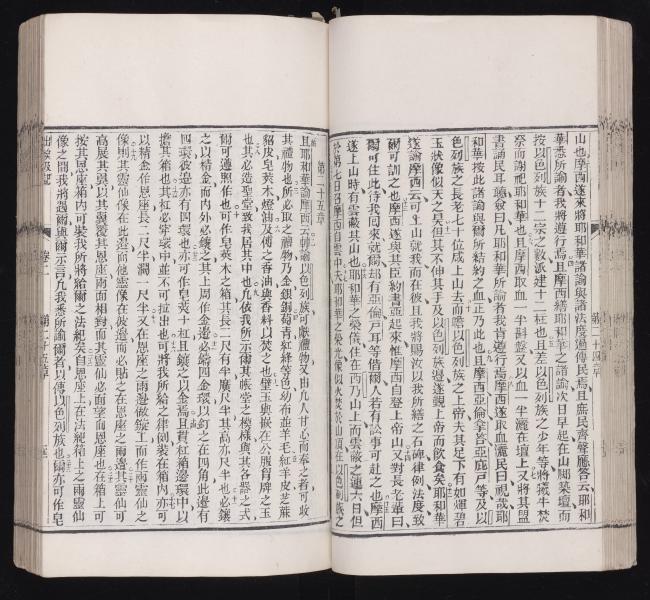 第二十四章
山也摩西遂來將耶和華諸諭與諸法度過傳民焉且庶民齊聲應答云耶和
華悉所諭者我將遵行焉且摩西繕耶和華之諸諭次日早起在山閣築壇而
按以色列族十二宗之數派建十二柱也且差以色列族之少年等將犧牛焚
祭而謝祀耶和華也且摩西取血一半斟盤又以血一半灑在壇上又將其盟
書誦民耳聽僉曰凡耶和華所諭者我肯遵行焉摩西遂取血灑民曰視哉耶
和華按此諸諭與爾所結約之血正乃此也且摩西亞倫拿答亞庇戶等及以
色列族之長老七十位成上山去而瞻以色列族之上帝夫其足下有如煇碧
玉狀像似天之皂但其不伸其手及以色列族邊遂覲上帝而飲食矣耶和華
遂諭摩西云可上山就我而在彼且我將賜汝以我所繕之石碑律例法度致
爾可訓之也摩西遂與其臣約書亞起來惟摩西自登上帝山又對長老輩曰
爾可住此待我回來就爾却有亞倫戶耳等偕爾人若有訟事可赴之也摩西
遂上山時有雲蔽其山也耶和華之榮儀住在西乃山上而雲蔽之連六日但
於第七日召摩西自雲中夫耶和華之榮光像似火焚於山頂在以色列族之
第二十五章
且耶和華諭摩西云轉諭以色列族可獻禮物又由凡人甘心而奉之者可收
其禮物也所必取之禮物乃金銀銅萄青紅絳等色幼布並羊毛紅羊皮芝蔴
貂皮皂莢木燈油及傅之香油與香料以焚之也璧玉與嵌在公服胷牌之玉
也其必造聖堂致我居其中也凡依我所示爾其帳堂之模樣與其各器之式
爾可遵照作也可作皂莢木之箱其長二尺有半廣尺半其高亦尺半也必鑲
之以精金而內外必鑲之其上周作金邊必鑄四金環以釘之在四角此邊有
四環彼邊亦有四環也亦可作皂莢十杠且鑲之以金焉且貫杠箱邊環中以
擔其箱也其杠必牢環中並不可拉出也可將我所給之律例裝在箱內亦可
以精金作恩座長二尺半濶一尺半又在恩座之兩邊做錠工而作兩靈仙之
像則其靈仙像在此邊而他靈像在彼邊而必貼之在恩座之兩邊其靈仙可
高展其翼以其翼覆其恩座兩面相對而其靈仙必面望而恩座也在箱上可
按其恩座箱內可裝我所將給爾之法紀矣自恩座上在法紀箱上之兩靈仙
像之間我將遇爾與爾示言凡我悉所諭爾者以傳以色列族也爾亦可作皂
出埃及記　卷二　第二十五章